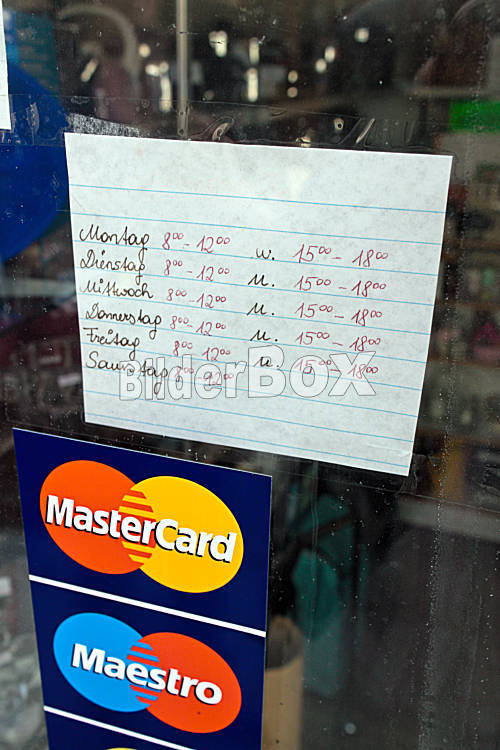 Montag 8⁰⁰ - 12⁰⁰ u. 15⁰⁰ - 18⁰⁰
Dienstag 8⁰⁰ - 12⁰⁰ u. 15⁰⁰ - 18⁰⁰
Mittwoch 8⁰⁰ - 12⁰⁰ u. 15⁰⁰ - 18⁰⁰
Donnerstag 8⁰⁰ - 12⁰⁰ u. 15⁰⁰ - 18⁰⁰
Freitag 8⁰⁰ 12⁰⁰ u. 15⁰⁰ - 18⁰⁰
Samstag 8⁰⁰ 12⁰⁰ u. 15⁰⁰ 18⁰⁰
BilderBOX
MasterCard
Maestro